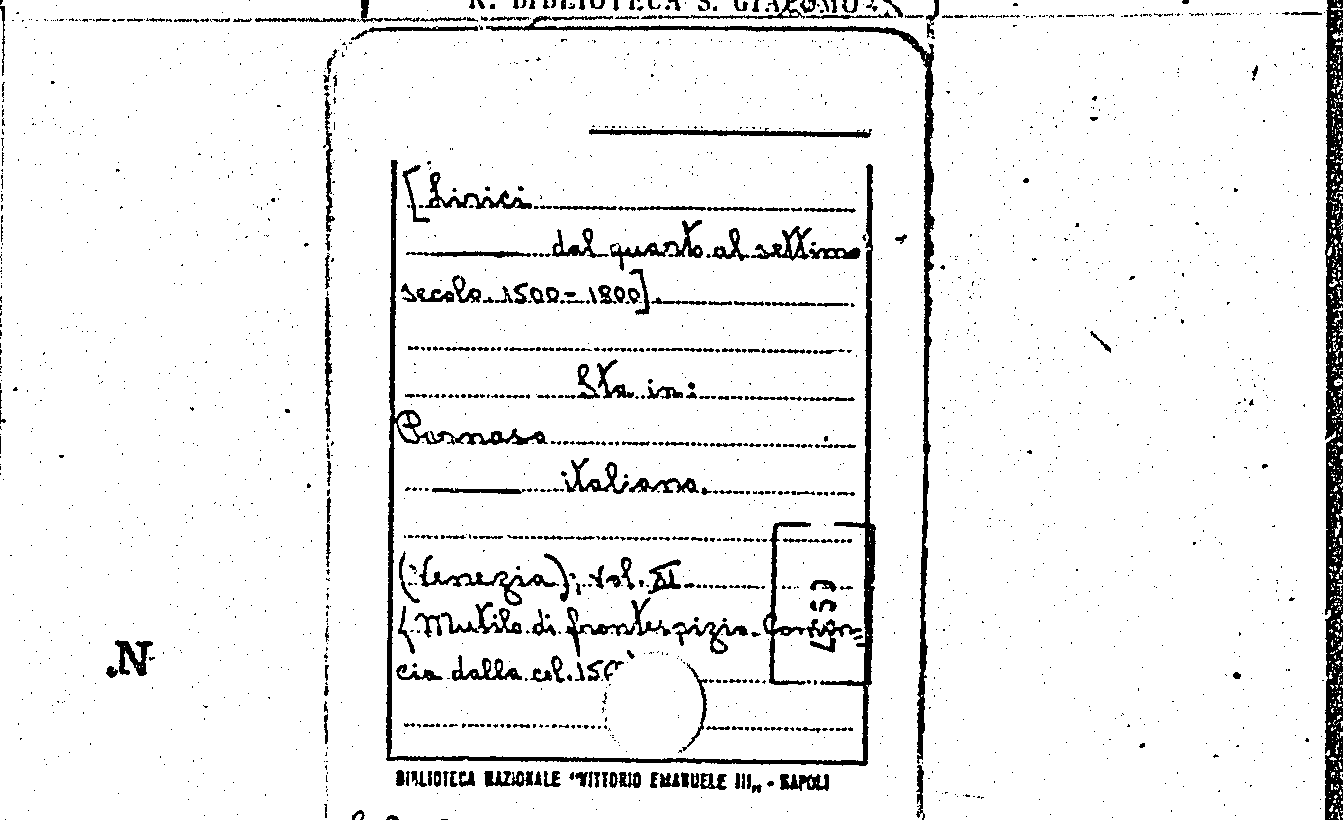 R. BIBLIOTECA S. GIACOMO
[Lirici
dal quarto al settimo
secolo. 1500 - 1800].
Sta in:
Parnaso
italiano.
(Venezia); vol. XI
(Mutilo di frontespizio. Comin=
cia dalla col. 150
BIBLIOTECA NAZIONALE "VITTORIO EMANUELE III„ - NAPOLI
.N